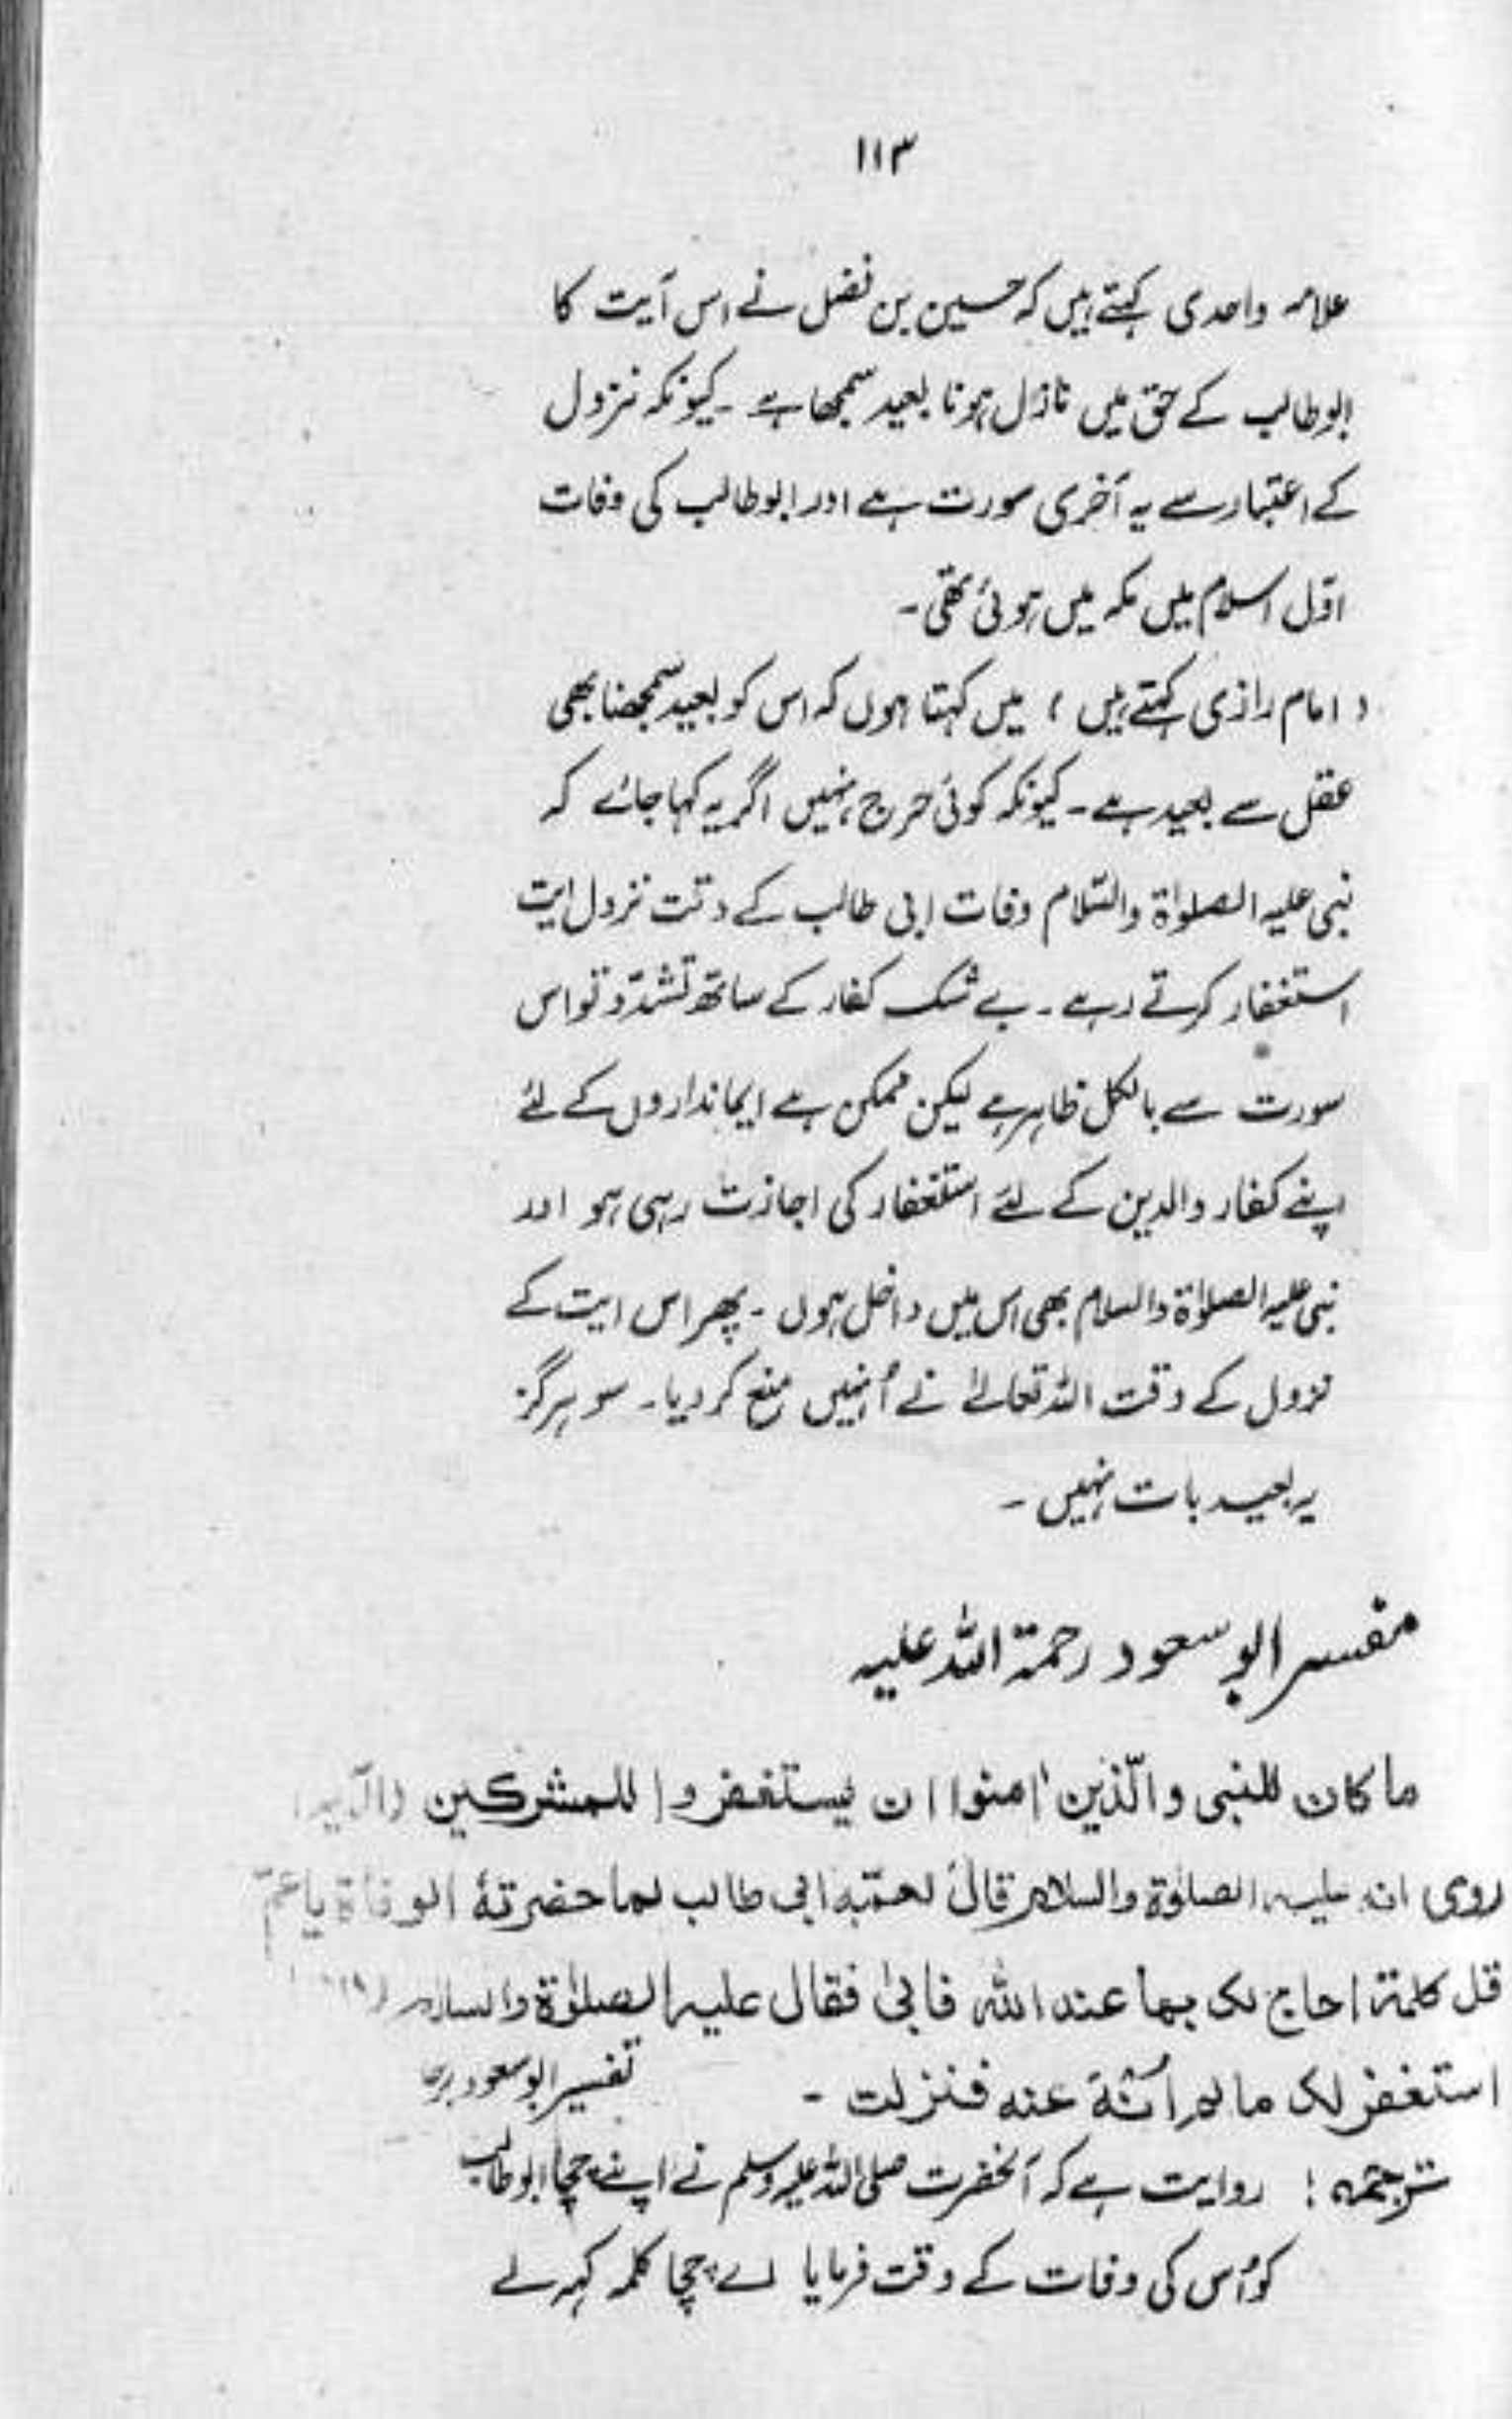 ۱۱۳
علامہ واحدی کہتے ہیں کہ حسین بن فضل نے اس آیت کا
ابوطالب کے حق میں نازل ہونا بعید سمجھا ہے ۔ کیونکہ نزول
کے اعتبار سے یہ آخری سورت ہے اور ابوطالب کی وفات
اوّل اسلام میں مکہ میں ہوئی تھی ۔
( امام رازی کہتے ہیں ) میں کہتا ہوں کہ اس کو بعید سمجھنا بھی
عقل سے بعید ہے ۔ کیونکہ کوئی حرج نہیں اگر یہ کہا جائے کہ
نبی علیہ الصلوٰۃ والسّلام وفات ابی طالب کے وقت نزول ایت
استغفار کرتے رہے ۔ بے شک کفار کے ساتھ تشدّد تو اس
سورت سے بالکل ظاہر ہے لیکن ممکن ہے ایمانداروں کے لئے
اپنے کفار والدین کے لئے استغفار کی اجازت رہی ہو اور
نبی علیہ الصلوٰۃ والسلام بھی اس میں داخل ہوں ۔ پھر اس ایت کے
نزول کے وقت اللہ تعالےٰ نے اُنہیں منع کر دیا ۔ سو ہرگز
یہ بعید بات نہیں ۔
مفسر ابو سعود رحمۃ اللہ علیہ
ما کان للنبی والّذین اٰمنوا ان یستغفروا للمشرکین (الآیہ)
روی انہ علیہ الصلوٰۃ والسلام قال لعمّہ ابی طالب لما حضرتہ الوفاۃ یا عمّ
قل کلمۃ احاج لک بہا عند اللہ فابیٰ فقال علیہ الصلوٰۃ والسلام
استغفر لک مالم اُنۃ عنہ فنزلت ۔ تفسیر ابو سعود
ترجمہ : روایت ہے کہ آنحضرت صلی اللہ علیہ وسلم نے اپنے چچا ابوطالب
کو اُس کی وفات کے وقت فرمایا اے چچا کلمہ کہہ لے